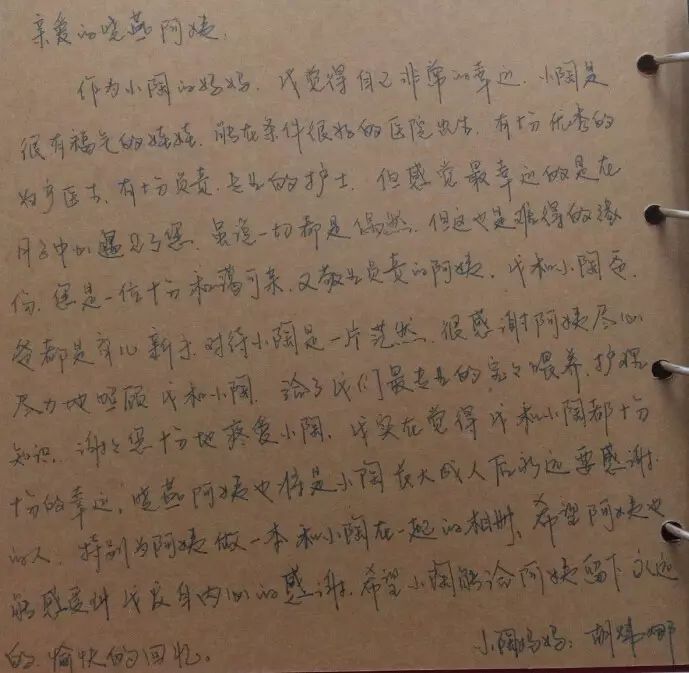 亲爱的晓燕阿姨,
作为小陶的妈妈,我觉得自己非常的幸运,小陶是
很有福气的娃娃,能在条件很好的医院出生,有十分优秀的
妇产医生,有十分负责、专业的护士,但感觉最幸运的是在
月子中心遇见了您,虽说一切都是偶然,但这也是难得的缘
份,您是一位十分和蔼可亲,又敬业负责的阿姨,我和小陶爸
爸都是育儿新手,对待小陶是一片茫然,很感谢阿姨尽心
尽力地照顾我和小陶,给了我们最专业的宝宝喂养、护理
知识,谢谢您十分地疼爱小陶,我实在觉得我和小陶都十分
十分的幸运,晓燕阿姨也将是小陶长大成人后永远要感谢
的人,特别为阿姨做一本和小陶在一起的相册,希望阿姨也
能感受到我发自内心的感谢,希望小陶能给阿姨留下永远
的、愉快的回忆。
小陶妈妈:胡娜